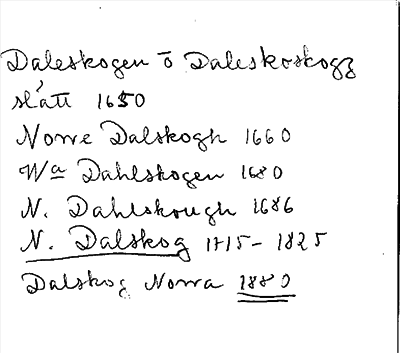 Daleskogen ō Daleskoskogz
slátt 1650
Norre Dalskogh 1660
Wa Dahlskogen 1680
N. Dahlskough 1686
N. Dalskog 1715-1825
Dalskog Norra 1880